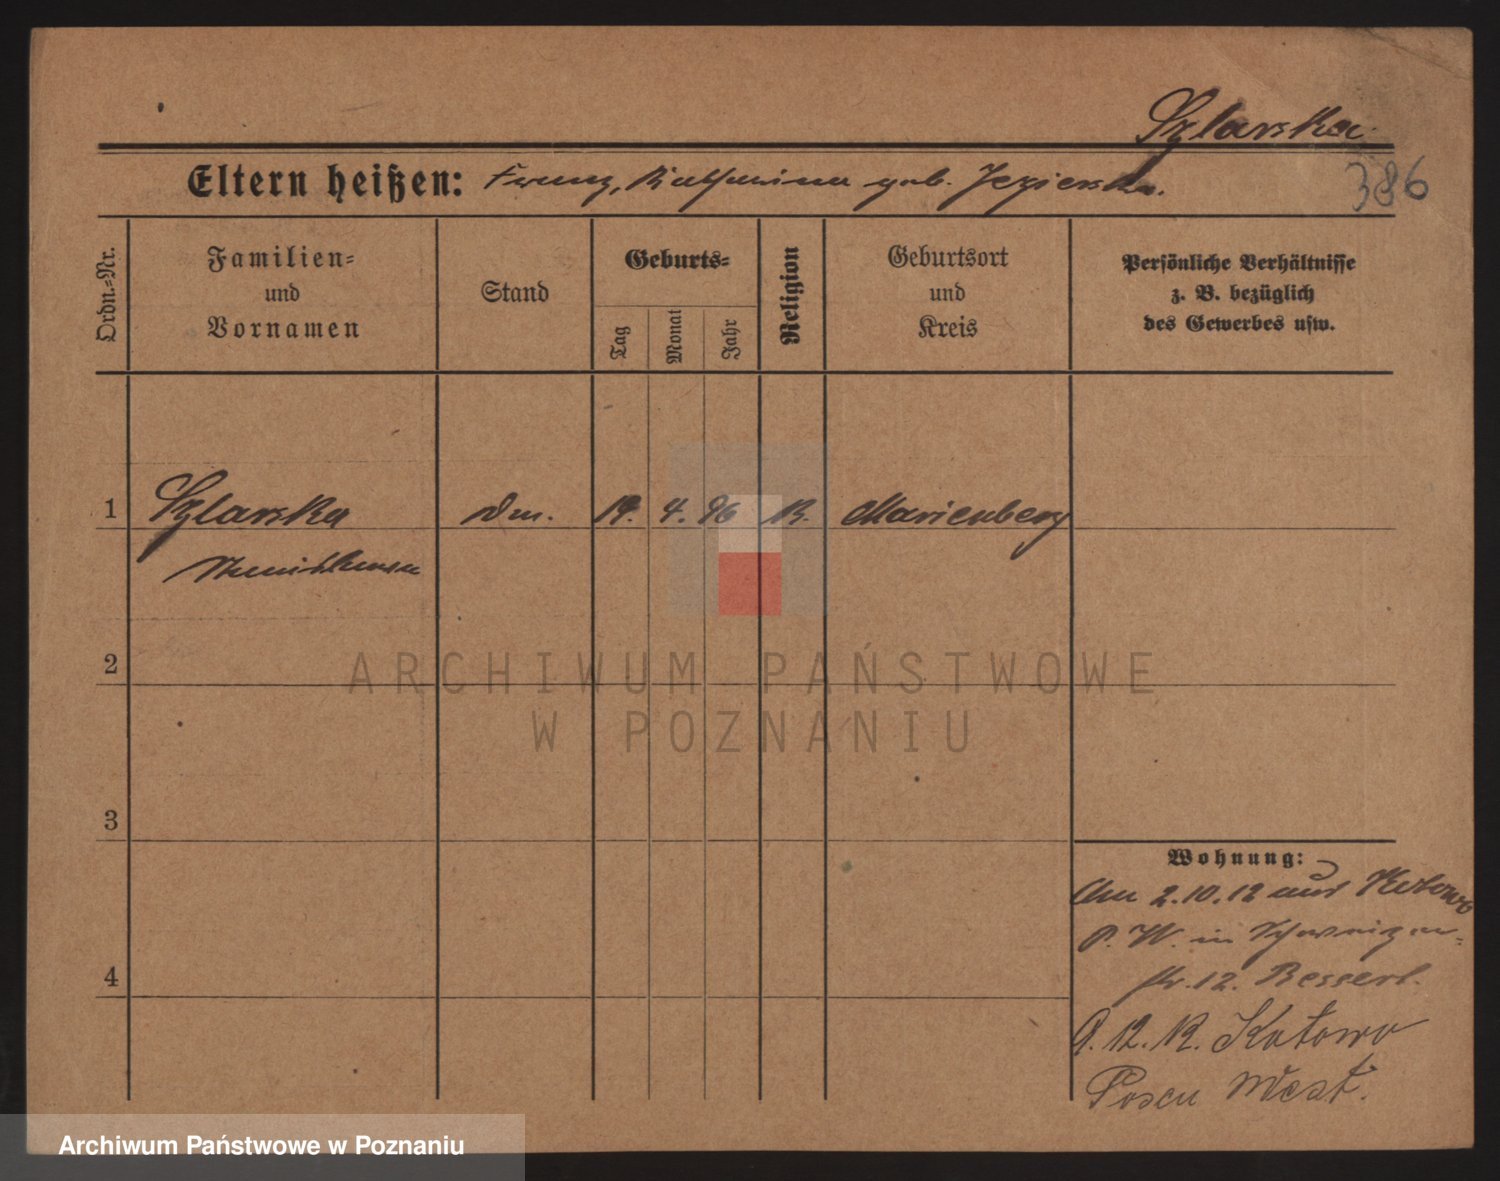 Szlarska.
386
Eltern heißen: Franz, Katharina geb. Jezierska.
Ordn.-Nr.
Familien-
und
Vornamen
Stand
Geburts-
Tag
Monat
Jahr
Religion
Geburtsort
und
Kreis
Persönliche Verhältnisse
z. B. bezüglich
des Gewerbes usw.
1 Szlarska 19. 4. 96 K. Marienberg
Stanislawa
2
ARCHIWUM PAŃSTWOWE
W POZNANIU
3
Wohnung:
Am 2.10.12 aus Kotowo
P. W. in
str. 12.
4
9. 12. 12. Kotowo
Posen West.
Archiwum Państwowe w Poznaniu